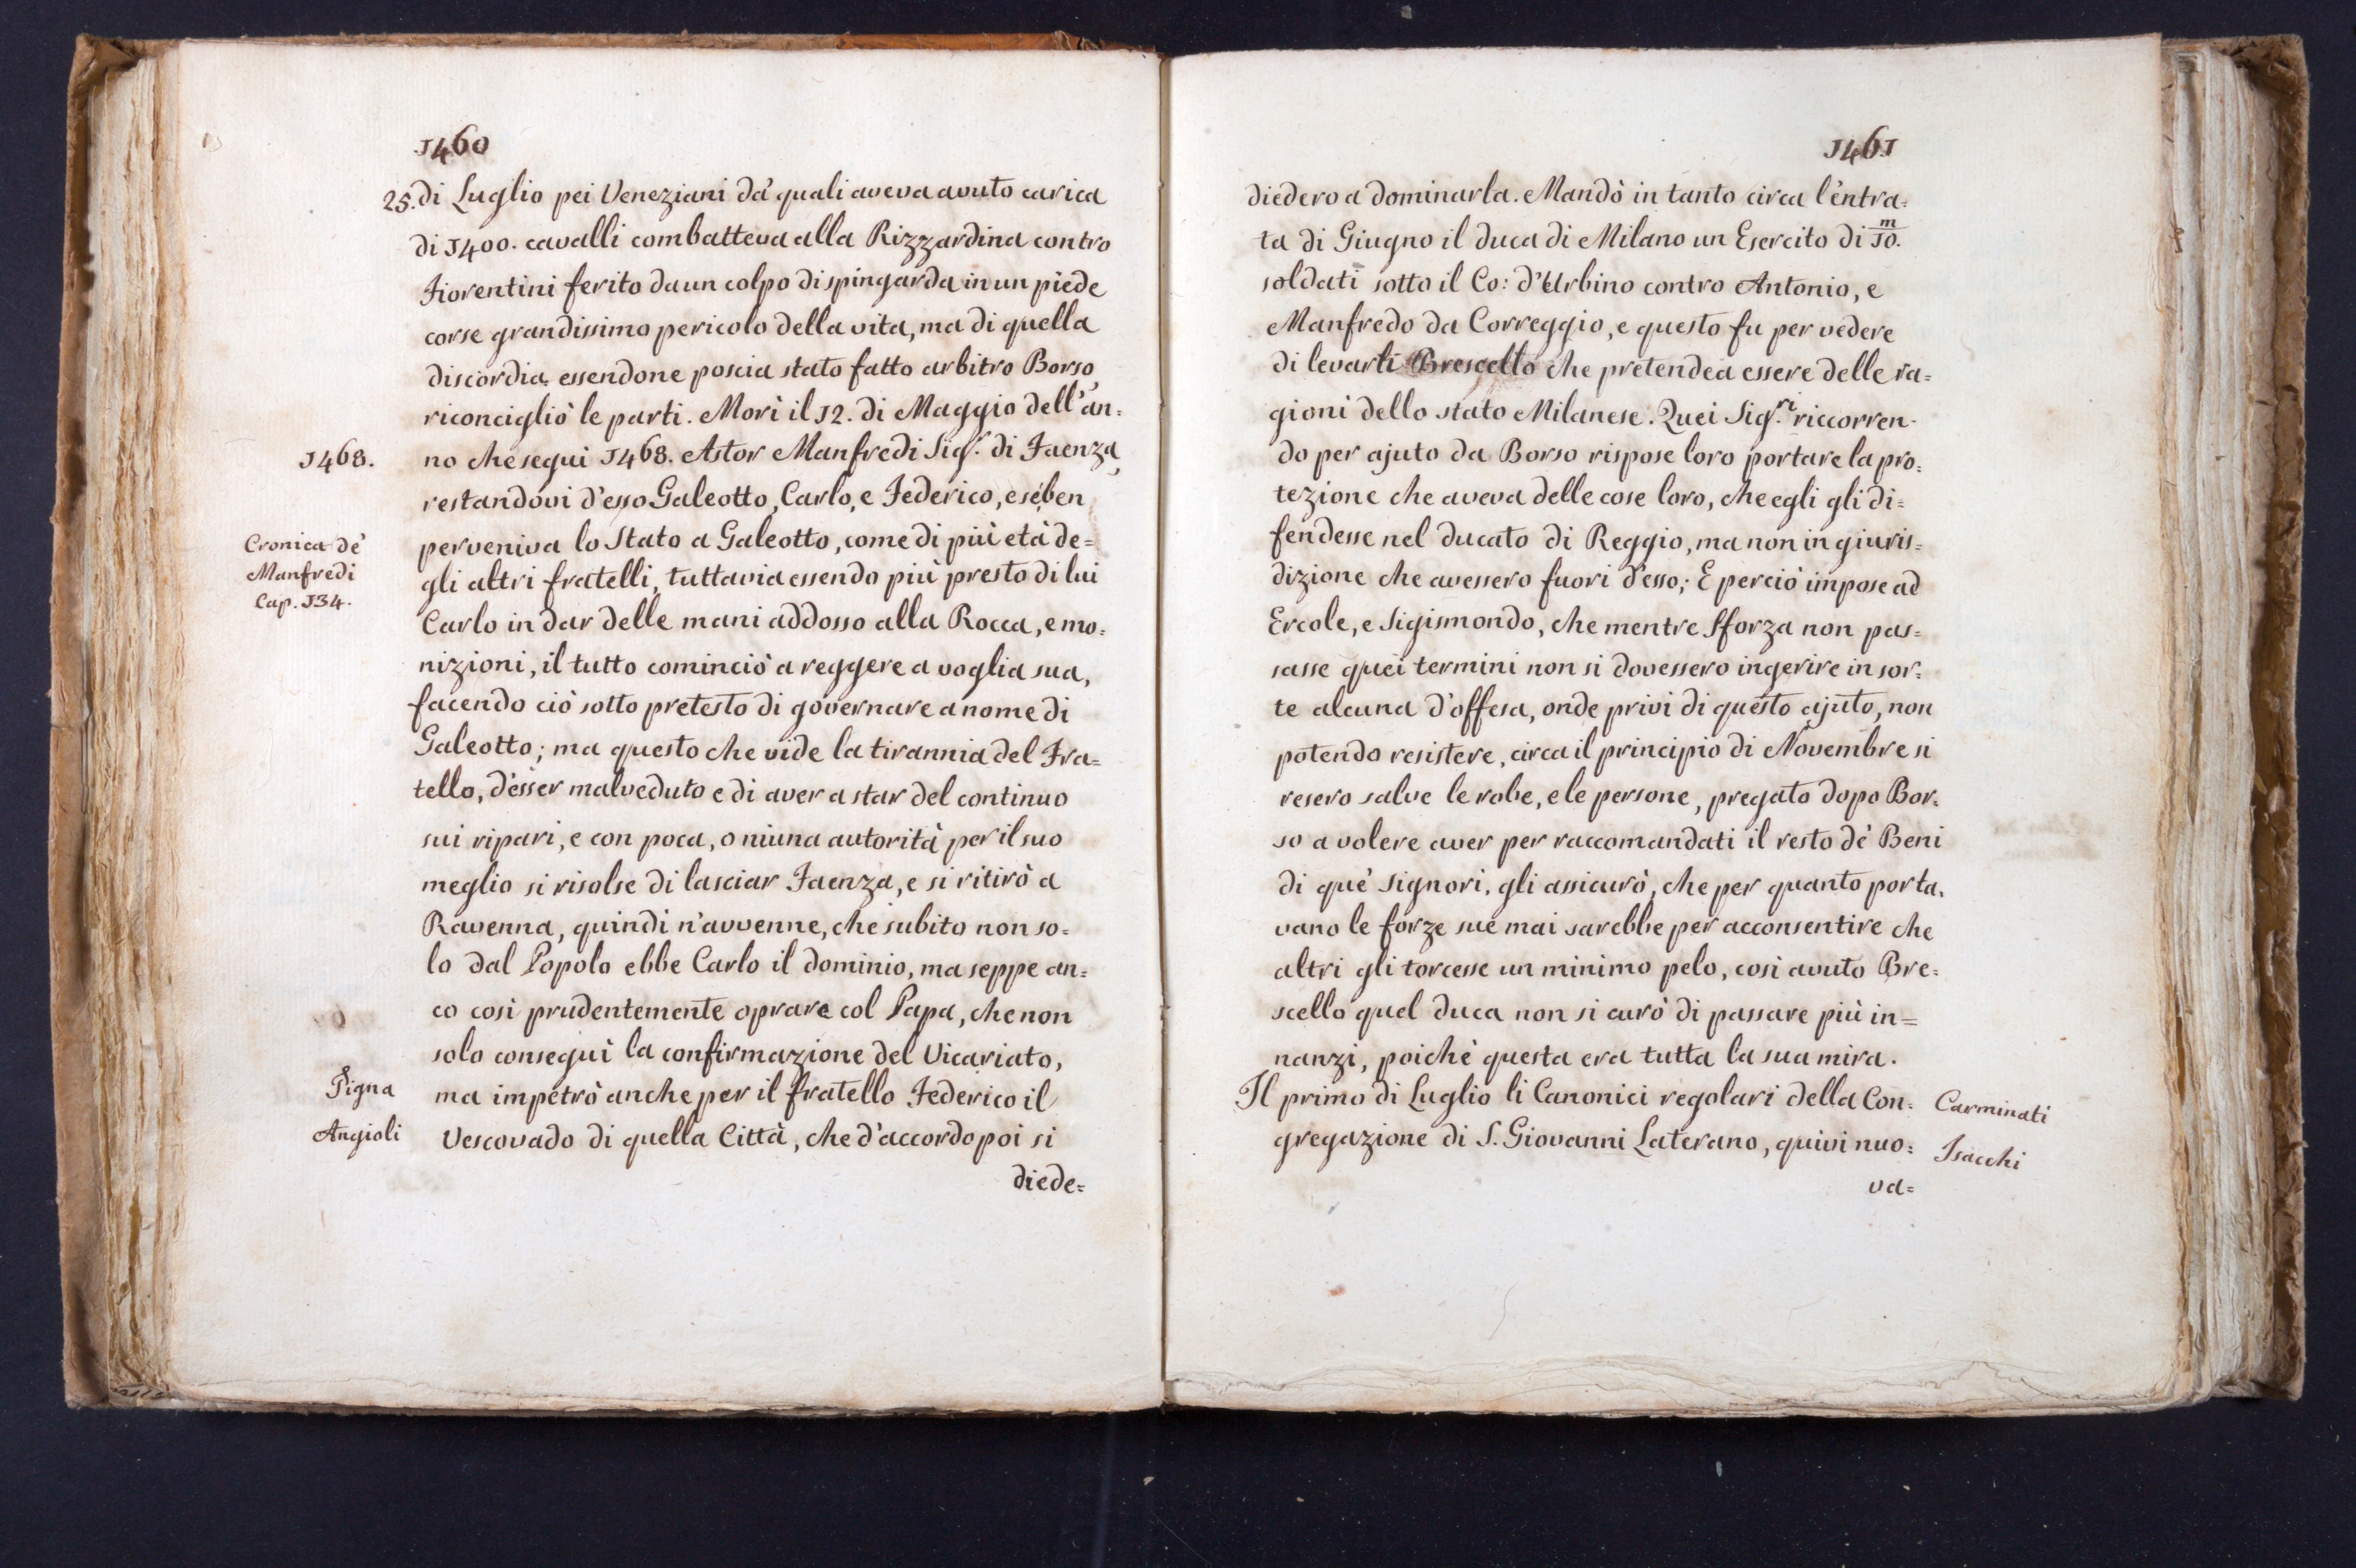 1460
25. di Luglio pei Veneziani da' quali aveva avuto carica
di 1400. cavalli combatteva alla Rizzardina contro
Fiorentini ferito da un colpo di spingarda in un piede
corse grandissimo pericolo della vita, ma di quella
discordia essendone poscia stato fatto arbitro Borso,
riconcigliò le parti. Morì il 12. di Maggio dell'an=
1468.
no che seguì 1468. Astor Manfredi Sig.r di Faenza,
restandovi d'esso Galeotto, Carlo, e Federico, e sebben
Cronica de'
Manfredi
Cap. 134.
perveniva lo Stato a Galeotto, come di più età de=
gli altri fratelli, tuttavia essendo più presto di lui
Carlo in dar delle mani addosso alla Rocca, e mo=
nizioni, il tutto cominciò a reggere a voglia sua,
facendo ciò sotto pretesto di governare a nome di
Galeotto; ma questo che vide la tirannia del Fra=
tello, d'esser malveduto e di aver a star del continuo
sui ripari, e con poca, o niuna autorità per il suo
meglio si risolse di lasciar Faenza, e si ritirò a
Ravenna, quindi n'avvenne, che subito non so=
lo dal Popolo ebbe Carlo il dominio, ma seppe an=
co così prudentemente oprare col Papa, che non
solo conseguì la confirmazione del Vicariato,
Pigna
ma impetrò anche per il fratello Federico il
Angioli
Vescovado di quella Città, che d'accordo poi si
diede=
1461
diedero a dominarla. Mandò in tanto circa l'entra=
ta di Giugno il Duca di Milano un Esercito di 10.m
soldati sotto il Co: d'Urbino contro Antonio, e
Manfredo da Correggio, e questo fu per vedere
di levarli Brescello che pretendea essere delle ra=
gioni dello stato Milanese. Quei Sig.ri riccorren=
do per ajuto da Borso rispose loro portare la pro=
tezione che aveva delle cose loro, che egli gli di=
fendesse nel Ducato di Reggio, ma non in giuris=
dizione che avessero fuori d'esso; E perciò impose ad
Ercole, e Sigismondo, che mentre Sforza non pas=
sasse quei termini non si dovessero ingerire in sor=
te alcuna d'offesa, onde privi di questo ajuto, non
potendo resistere, circa il principio di Novembre si
resero salve le robe, e le persone, pregato dopo Bor=
so a volere aver per raccomandati il resto de' Beni
di que' Signori, gli assicurò, che per quanto porta=
vano le forze sue mai sarebbe per acconsentire che
altri gli torcesse un minimo pelo, così avuto Bre=
scello quel Duca non si curò di passare più in=
nanzi, poichè questa era tutta la sua mira.
Il primo di Luglio li Canonici regolari della Con=
Carminati
gregazione di S. Giovanni Laterano, quivi nuo=
Isacchi
va=